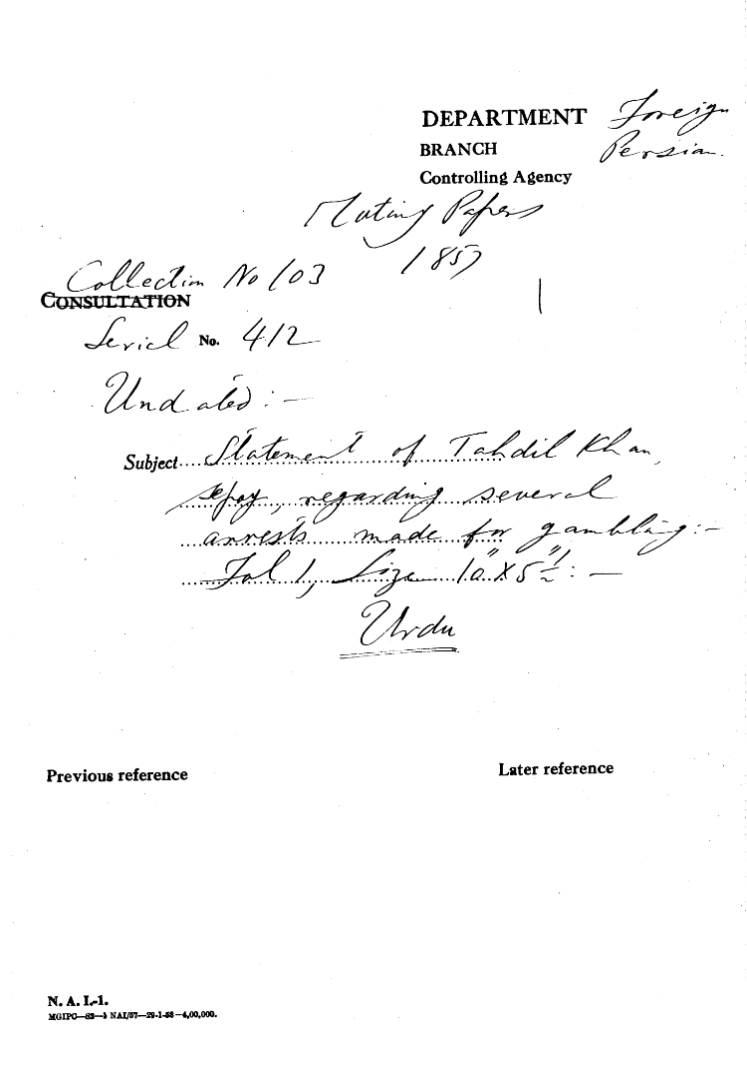 DEPARTMENT Foreign
BRANCH Persian.
Controlling Agency
Mutiny Papers
1857
Collection No 103
CONSULTATION
Serial No. 412
Undated :—
Subject Statement of Tahdil Khan,
sepoy, regarding several
arrests made for gambling :—
Fol 1, Size 10" X 5½" : —
Urdu
Previous reference
Later reference
N. A. I.-1.
MGIPC—82—1 NAI/57—29-1-58—4,00,000.